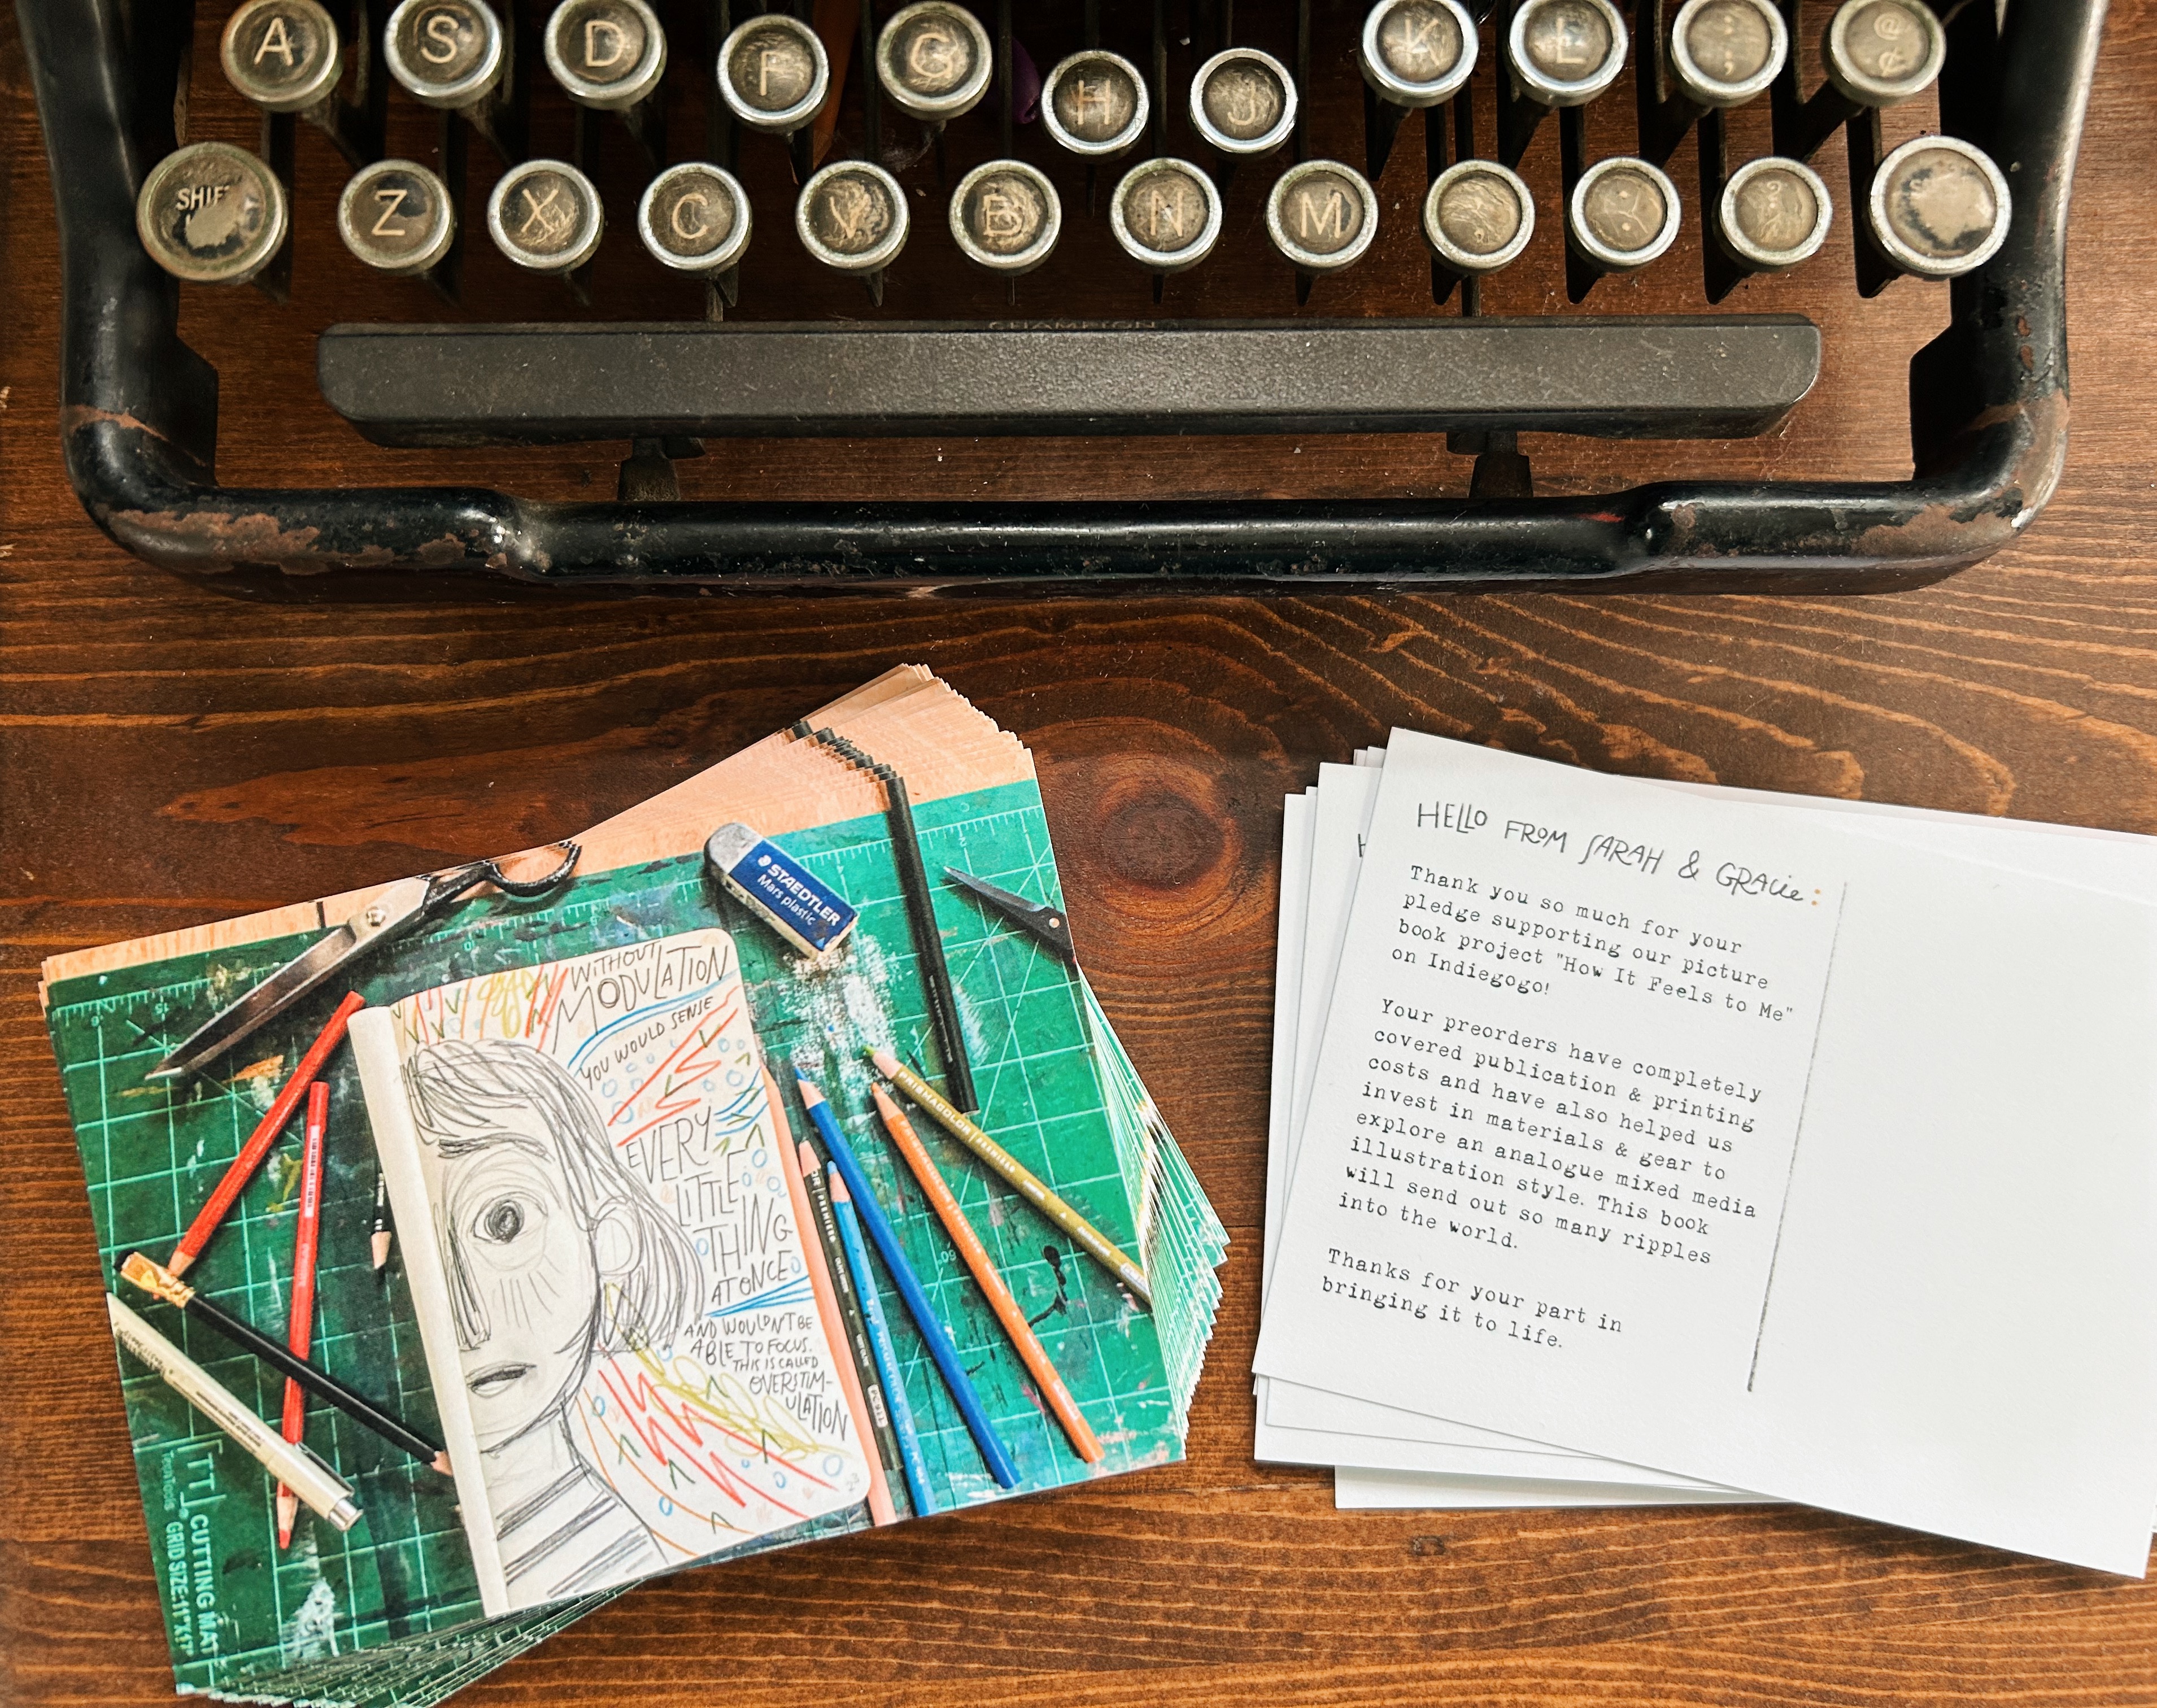 A S D F G H J K L : ; @ ¢
SHIF
Z X C V B N M
CHAMPION
STAEDTLER
Mars plastic
WITHOUT
MODULATION
YOU WOULD SENSE
EVERY
LITTLE
THING
AT ONCE
AND WOULDN'T BE
ABLE TO FOCUS.
THIS IS CALLED
OVERSTIM-
ULATION
PRISMACOLOR PREMIER
CUTTING MAT
GRID SIZE: 1" X 1"
HELLO FROM SARAH & GRACIE:
Thank you so much for your
pledge supporting our picture
book project "How It Feels to Me"
on Indiegogo!
Your preorders have completely
covered publication & printing
costs and have also helped us
invest in materials & gear to
explore an analogue mixed media
illustration style. This book
will send out so many ripples
into the world.
Thanks for your part in
bringing it to life.